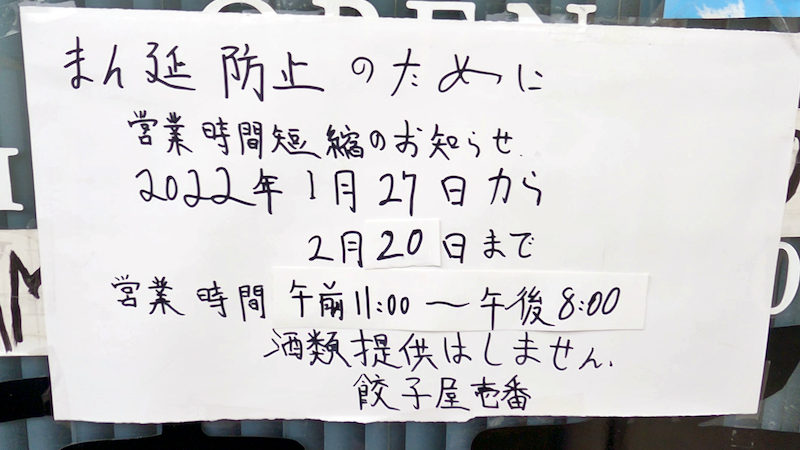 OPEN
まん延防止のために
営業時間短縮のお知らせ.
2022年1月27日から
2月20日まで
営業時間 午前11:00～午後8:00
酒類提供はしません.
餃子屋壱番